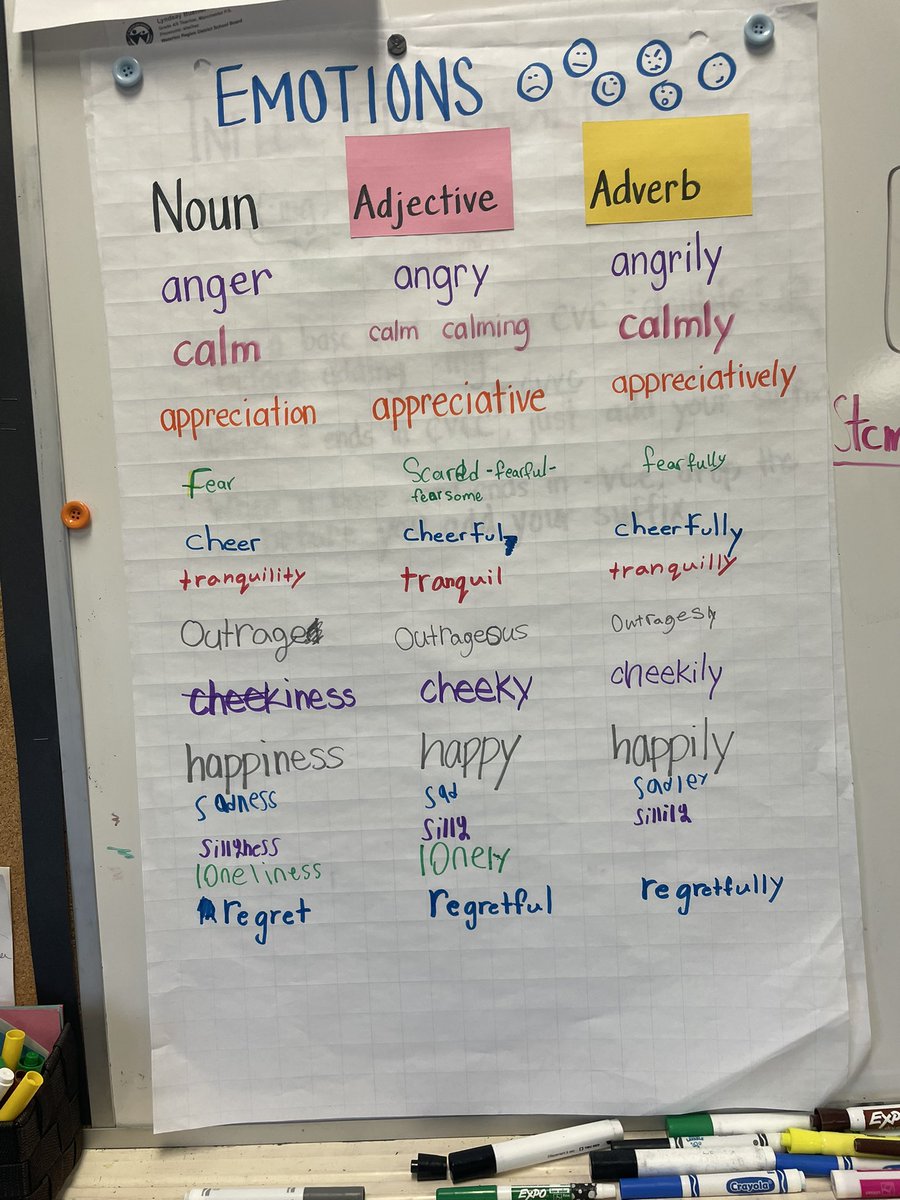 Lyndsay
EMOTIONS
Noun Adjective Adverb
anger angry angrily
calm calm calming calmly
appreciation appreciative appreciatively
fear Scared -fearful- fearfully
fearsome
cheer cheerful cheerfully
tranquility tranquil tranquilly
Outrage Outrageous
cheekiness cheeky cheekily
happiness happy happily
sadness sad sadley
sillyness silly sillily
loneliness lonely
regret regretful regretfully
Stem
EXPO
EXPO
Crayola